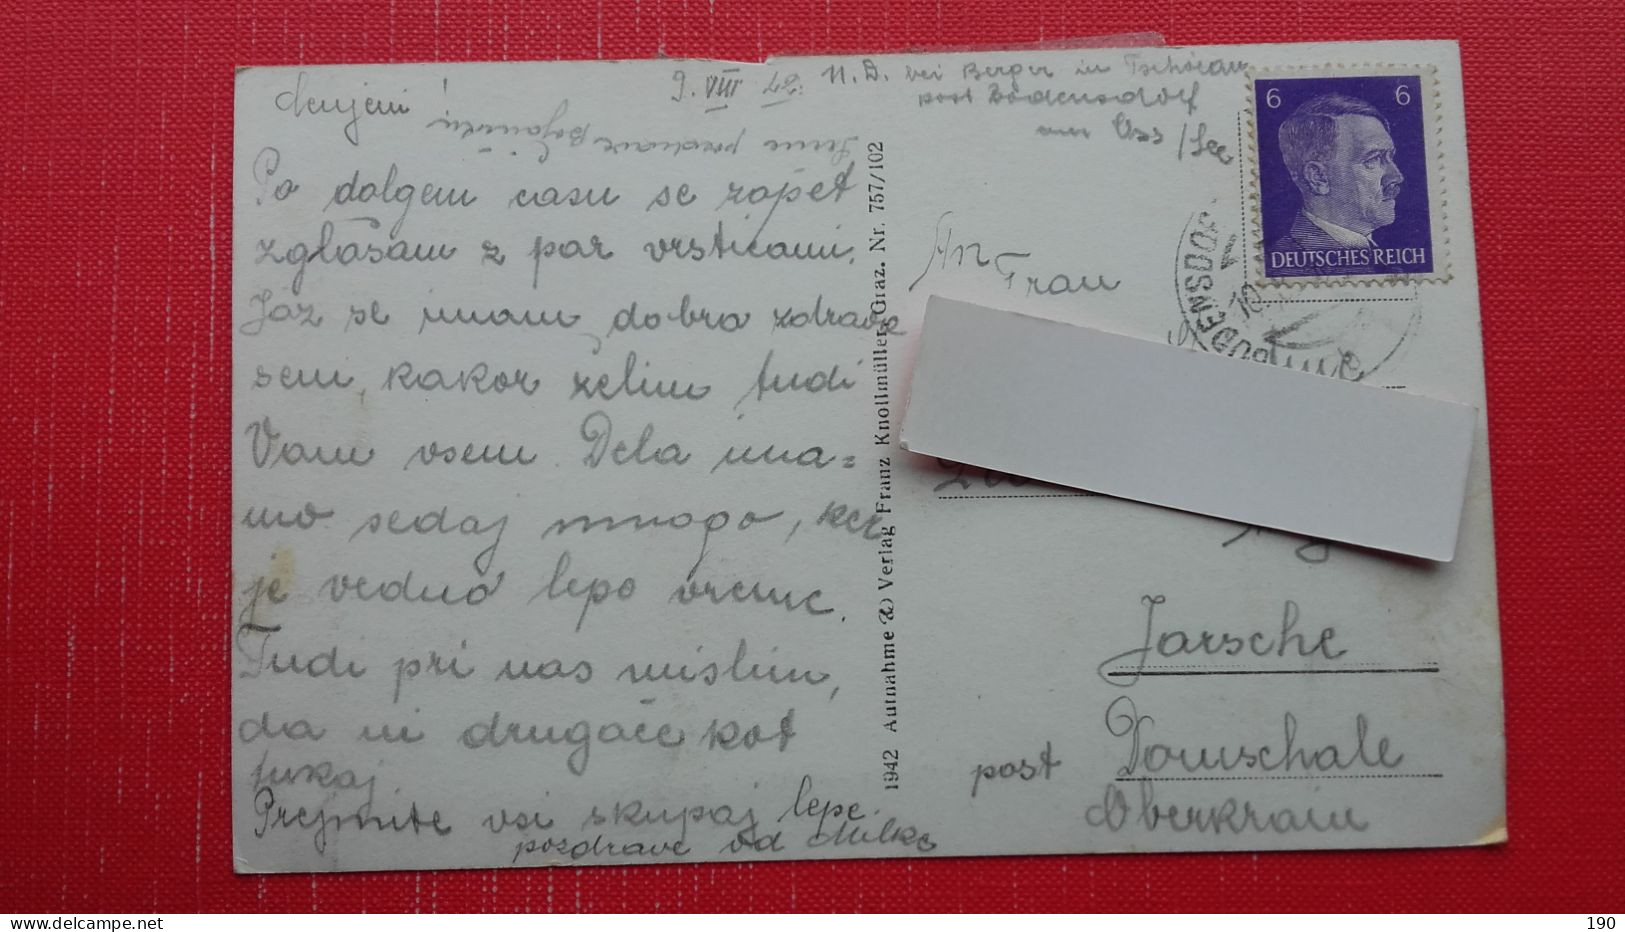 Cenjeni !
9. VIII 43 N. D. bei Berger in Tschöran
post Bodensdorf
am Oss /See
Po dolgem času se zopet
zglašam z par vrsticami.
Jaz se imam dobro zdrava
sem, kakor želim tudi
Vam vsem. Dela ima=
mo sedaj mnogo, ker
je vedno lepo vreme.
Tudi pri vas mislim,
da ni drugače kot
tukaj.
Prejmite vsi skupaj lepe
pozdrave od Milke
1942 Aufnahme & Verlag Franz Knollmüller, Graz. Nr. 757/102
6 6
DEUTSCHES REICH
An Frau
Jarsche
post Domschale
Oberkrain
190